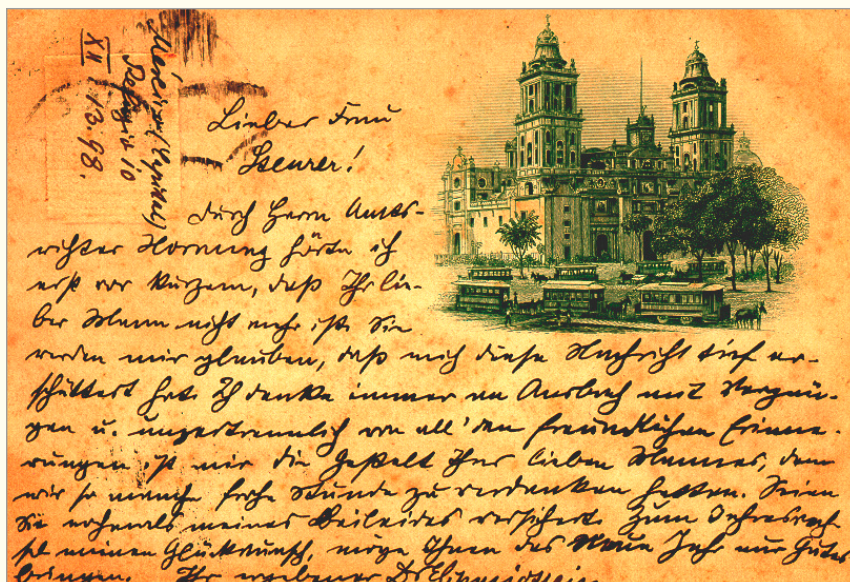 Mexico (Capital)
Refugio 10
XII 13. 98.
Liebe Frau
Steurer!
Durch Herrn Amts-
richter Hornung hörte ich
erst vor Kurzem, daß Ihr lie-
ber Mann nicht mehr ist. Sie
werden mir glauben, daß mich diese Nachricht tief er-
schüttert hat. Ich denke immer an Ansbach mit Vergnü-
gen u. unzertrennlich von all' den freundlichen Erinne-
rungen ist mir die Gestalt Ihres lieben Mannes, dem
wir so manche frohe Stunde zu verdanken hatten. Seien
Sie nochmals meines Beileides versichert. Zum Jahreswech-
sel meinen Glückwunsch, möge Ihnen das Neue Jahr nur Gutes
bringen. Ihr ergebener